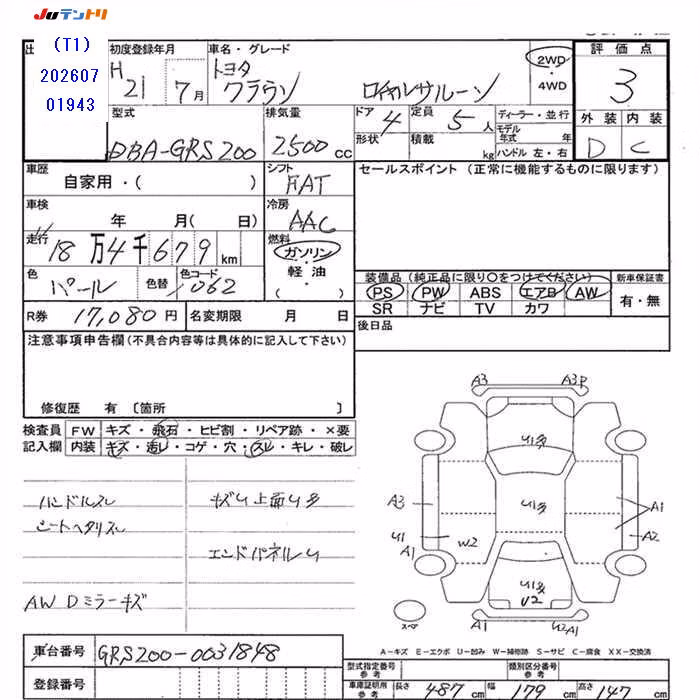 JUテントリ
(T1)
202607
01943
初度登録年月
H21 7月
車名・グレード
トヨタ
クラウン ロイヤルサルーン
2WD
・
4WD
評価点
3
外装 内装
D C
型式
DBA-GRS200
排気量
2500cc
ドア 4
形状
定員 5人
積載 kg
ディーラー・並行
モデル年式 年
ハンドル 左・右
車歴
自家用・( )
シフト
FAT
セールスポイント (正常に機能するものに限ります)
車検
年 月( 日)
冷房
AAC
走行
18万4千679km
燃料
ガソリン
・
軽油
・
( )
色
パール
色替
色コード
062
装備品 (純正品に限り○をつけてください)
PS PW ABS エアB AW
SR ナビ TV カワ
新車保証書
有・無
R券 17,080円
名変期限 月 日
後日品
注意事項申告欄(不具合内容等は具体的に記入して下さい)
修復歴 有 〔箇所 〕
検査員
記入欄
FW キズ・飛石・ヒビ割・リペア跡・×要
内装 キズ・汚レ・コゲ・穴・スレ・キレ・破レ
ハンドルスレ
シートヘタリスレ
AW Dミラーキズ
キズU上面U多
エンドパネルU
A3 A3P
U1多
A3
U1多
A1
U1
A1
W2
A2
U1多
U2
スペア
A1
U2 A1
A-キズ E-エクボ U-凹み W-補修跡 S-サビ C-腐食 XX-交換済
車台番号 GRS200-0031848
登録番号
型式指定番号
参考
類別区分番号
車庫証明用
参考
長さ 487cm
幅 179cm
高さ 147cm